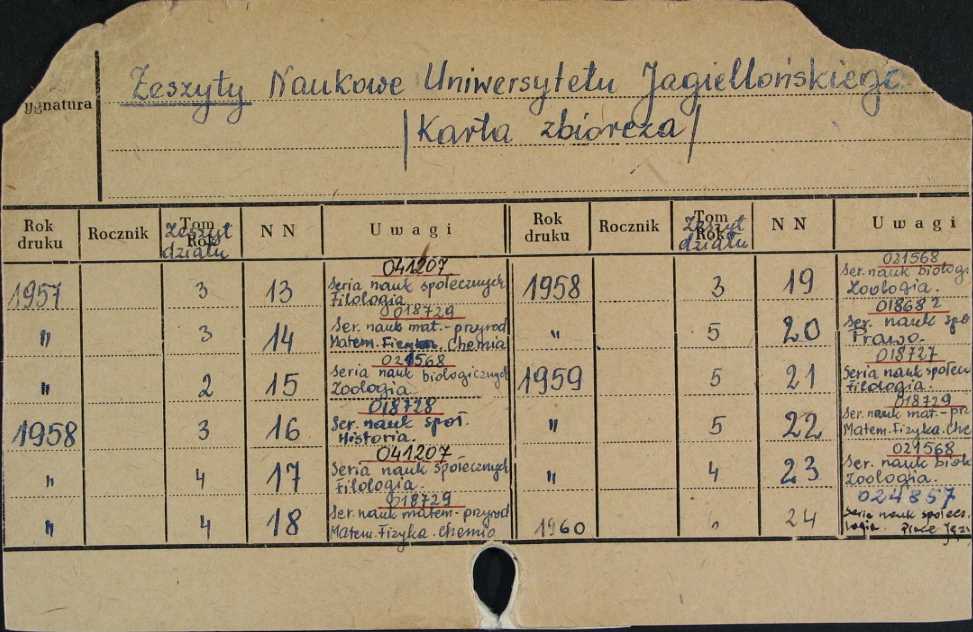 Zeszyty Naukowe Uniwersytetu Jagiellońskiego
ygnatura
/Karta zbiorcza/
Rok druku Rocznik Tom Rok Zeszyt działu N N Uwagi
1957 3 13 041207
Seria nauk społecznych
Filologia
" 3 14 018729
Ser. nauk mat.-przyrod
Matem. Fizyka. Chemia
" 2 15 021568
Seria nauk biologicznych
Zoologia.
1958 3 16 018728
Ser. nauk społ.
Historia.
" 4 17 041207
Seria nauk społecznych
Filologia.
" 4 18 018729
Ser. nauk matem-przyrod
Matem. Fizyka. Chemia
Rok druku Rocznik Tom Rok Zeszyt działu N N Uwagi
1958 3 19 021568
Ser. nauk biolog
Zoologia.
" 5 20 018682
Ser. nauk spo
Prawo.
1959 5 21 018727
Seria nauk społecz
Filologia.
" 5 22 018729
Ser. nauk mat.-prz
Matem. Fizyka. Che
" 4 23 021568
Ser. nauk biolo
Zoologia.
1960 24 024857
Seria nauk społecz.
logia. Prace Języ